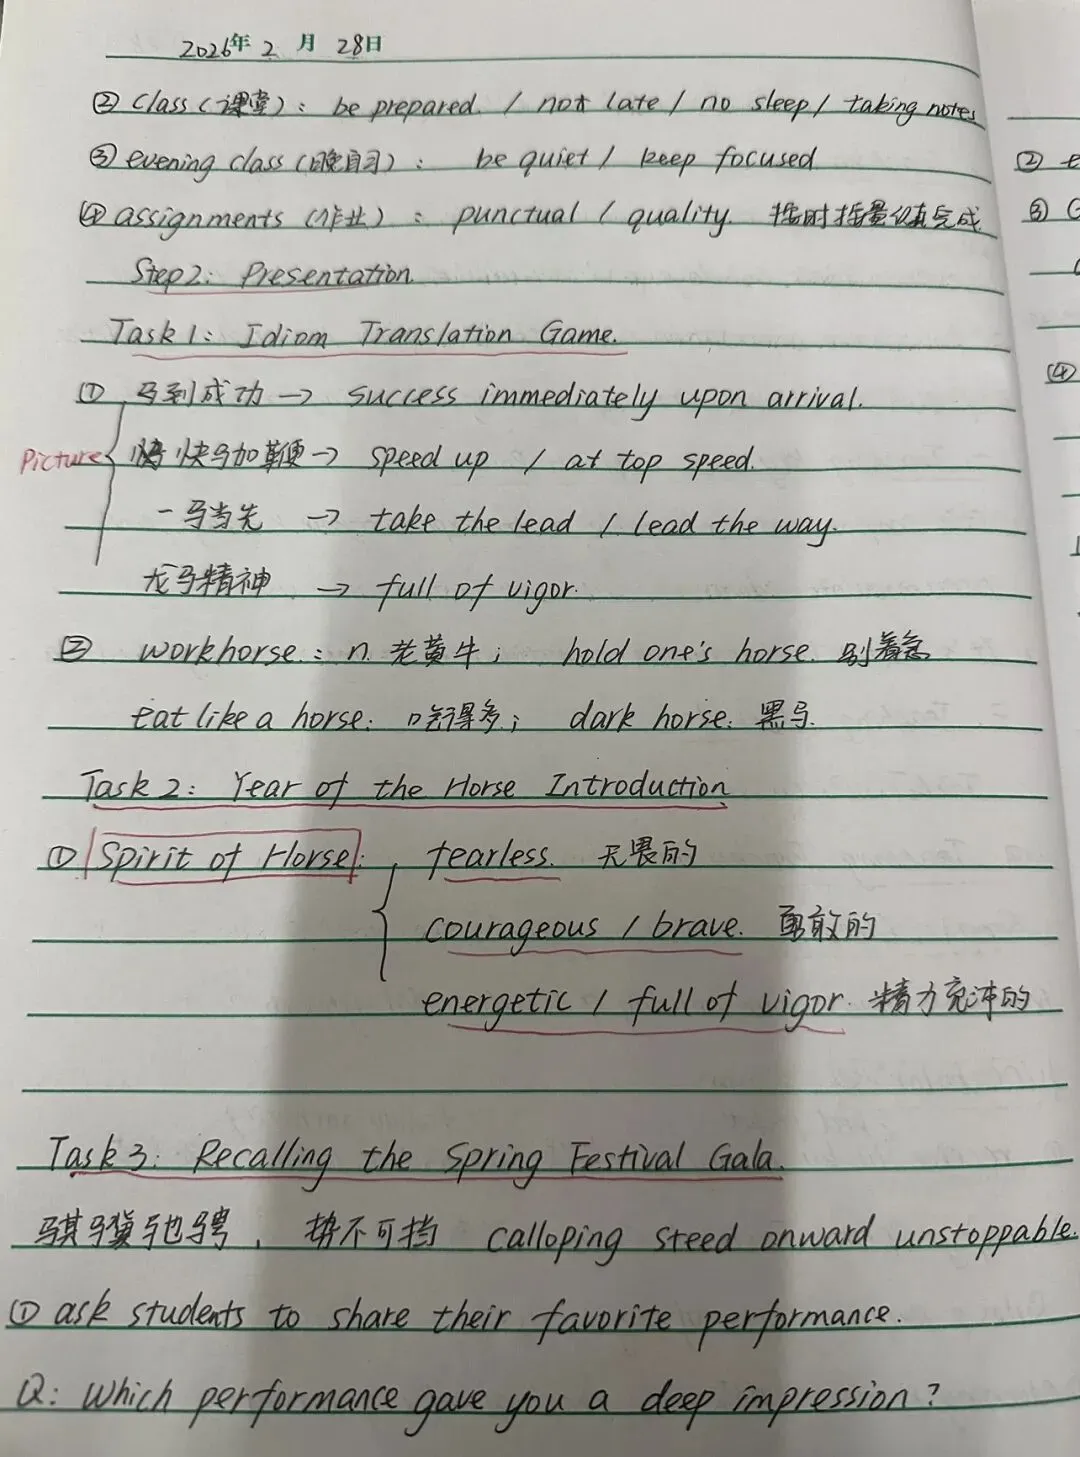 2026年 2 月 28日
② class (课堂) : be prepared. / not late / no sleep / taking notes
③ evening class (晚自习) : be quiet / keep focused
④ assignments (作业) : punctual / quality. 按时按量保质完成
Step2: Presentation
Task 1: Idiom Translation Game.
① 马到成功 → success immediately upon arrival.
Picture 快马加鞭 → speed up / at top speed.
一马当先 → take the lead / lead the way.
龙马精神 → full of vigor.
② workhorse : n. 老黄牛 ; hold one's horse. 别着急
eat like a horse: 吃得多 ; dark horse: 黑马.
Task 2: Year of the Horse Introduction
① Spirit of Horse : fearless. 无畏的
courageous / brave. 勇敢的
energetic / full of vigor. 精力充沛的
Task 3: Recalling the Spring Festival Gala.
骐骥驰骋 , 势不可挡 calloping steed onward unstoppable.
① ask students to share their favorite performance.
Q: Which performance gave you a deep impression ?
②
③
④